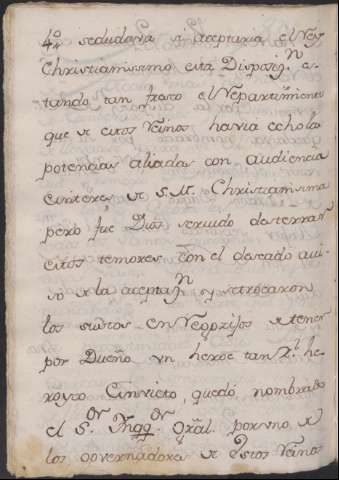 4º se dudaria si aceptaria el Rey
Christianissimo esta Disposiçn es-
tando tan fresco el Repartimiento
que de estos Reinos havia echo las
potencias aliadas con audiencia
e interes de S.M. Christianisima
pero fue Dios seruido desterrar
estos temores con el deseado aui-
so de la aceptaçn y se trocaron
los sustos en Regozijos de tener
por Dueño vn heroe tan Rl he-
royco e invicto, quedó nombrado
el Sor Inqqor Gral por vno de
los governadores de Estos Reinos